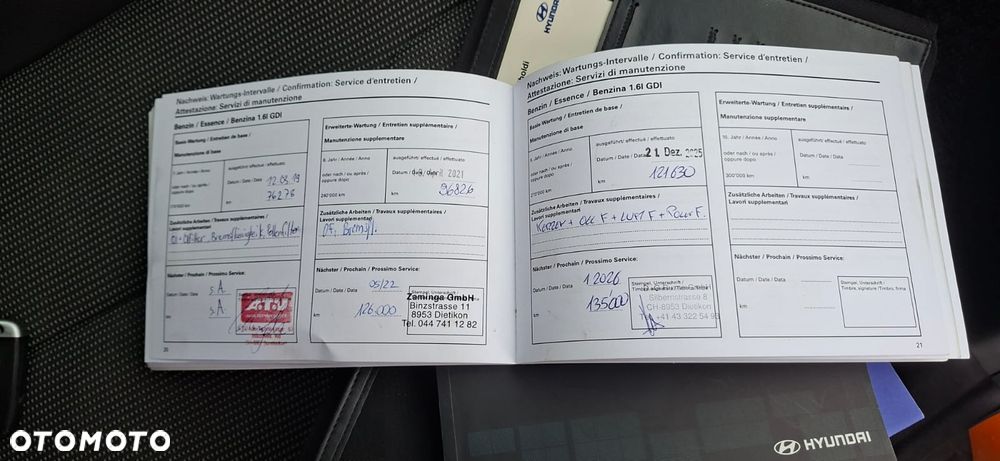 HYUNDAI
Nachweis: Wartungs-Intervalle / Confirmation: Service d'entretien /
Attestazione: Servizi di manutenzione
Benzin / Essence / Benzina 1.6l GDI
Basis-Wartung / Entretien de base /
Manutenzione di base
Jahr / Année / Anno
ausgeführt / effectué / effettuato
oder nach / ou après /
oppure dopo
Datum / Date / Data
12.03.19
km
76276
Zusätzliche Arbeiten / Travaux supplémentaires /
Lavori supplementari
Nächster / Prochain / Prossimo Service:
Datum / Date / Data
s.A.
km
s.A.
20
Erweiterte-Wartung / Entretien supplémentaire /
Manutenzione supplementare
8. Jahr / Année / Anno
ausgeführt / effectué / effettuato
oder nach / ou après /
oppure dopo
Datum / Date / Data
April 2021
240'000 km
km
96826
Zusätzliche Arbeiten / Travaux supplémentaires /
Lavori supplementari
Nächster / Prochain / Prossimo Service:
Datum / Date / Data
05/22
km
126.000
Stempel, Unterschrift /
Zaminga GmbH
Binzstrasse 11
8953 Dietikon
Tel. 044 741 12 82
Nachweis: Wartungs-Intervalle / Confirmation: Service d'entretien /
Attestazione: Servizi di manutenzione
Benzin / Essence / Benzina 1.6l GDI
Basis-Wartung / Entretien de base /
Manutenzione di base
Jahr / Année / Anno
ausgeführt / effectué / effettuato
oder nach / ou après /
oppure dopo
Datum / Date / Data
21 Dez. 2025
270'000 km
km
121630
Zusätzliche Arbeiten / Travaux supplémentaires /
Lavori supplementari
KERZEN + OEL F + LUFT F + POLLEN F.
Nächster / Prochain / Prossimo Service:
Datum / Date / Data
1.2026
km
135000
Stempel, Unterschrift /
Timbre, signature / Timbro, firma
Silbernstrasse 8
CH-8953 Dietikon
+41 43 322 54 93
Erweiterte-Wartung / Entretien supplémentaire /
Manutenzione supplementare
10. Jahr / Année / Anno
ausgeführt / effectué / effettuato
oder nach / ou après /
oppure dopo
Datum / Date / Data
300'000 km
km
Zusätzliche Arbeiten / Travaux supplémentaires /
Lavori supplementari
Nächster / Prochain / Prossimo Service:
Datum / Date / Data
km
Stempel, Unterschrift /
Timbre, signature / Timbro, firma
21
HYUNDAI
OTOMOTO